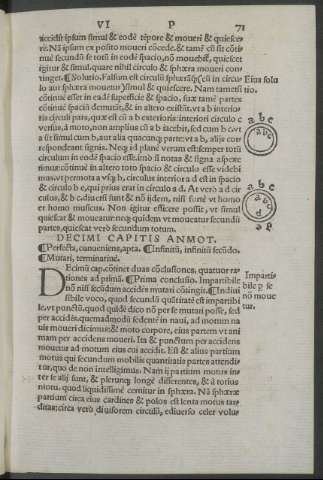 VI P 71
accidit ipsum simul & eodē tēpore & moueri & quiesce-
re. Nā ipsum ex posito moueri cōcede. & tamē cū sit cōti-
nuē secundū se totū in eodē spacio, nō mouebit, quiescet
igitur & simul. quare nihil circulo & sphæra moueri con-
tinget. ¶Solutio. Falsum est circulū sphærāq; (cū in circu Eius solu
lo aut sphæra mouetur) simul & quiescere. Nam tametsi tio.
cōtinuē esset in eadē superficie & spacio, sux tamē partes
cōtinuē spaciū
ris circuli pars, quæ est cū a b exteriora: interiori circulo c
versus, à moto, non amplius cū a b iacebit, sed cum b c vt
a b c
respondeant signis. Neq; id planē verum est semper totū
circulum in eodē spacio esse. imò si notas & signa asperē
tinuē: cōtinuē in altero toto spacio & circulo esse videbi
mus. vt permota a vsq; b, circulus interior a d est in spacio
& circulo b e, qui prius erat in circulo a d. At verò a d cir
culus, & b c. diuersi sunt & nō ijdem, nisi fuitē vt homo
et homo musicus. Non igitur efficere possit, vt simul
quiescat & moueatur: neq; quidem vt moueatur secundū
partes, quiescat verò secundum totum.
a b c
P
DECIMI CAPITIS ANNOT.
¶Perfecta, conueniens, apta. ¶Infinitū, infinitū secūdo.
¶Mutari, terminatiuē.
Decimū cap. cōtinet duas cōclusiones, quatuor ra- Impartis
tiones ad primā. ¶Prima conclusio. Impartibile bile p se
nō nisi secūdum accidēs mutari cōtingit. ¶Indiui nō moue
sibile voco, quod secundū quātitatē est impartibi tur.
le, vt punctū, quod quidē dico nō per se mutari posse, sed
per accidēs. quemadmodū sedentē in naui, ad motum na
uis moueri dicimus: & moto corpore, eius partem vt ani
mam per accidens moueri. Ita & punctum per accidens
mouetur ad motum eius cui accidit. Est & alius partium
motus qui secundum mobilis quantitatis partes attendi-
tur, quo de non intelligimus. Nam ij partium motus in-
ter se alij sunt, & plerunq; longē differentes, & à totius
motu. quod liquidissimē cernitur in sphæra. Nā sphæræ
partium circa eius cardines & polos est lenta motus tar-
ditas: circa verò diuisorem circulū, ediuerso celer volu-